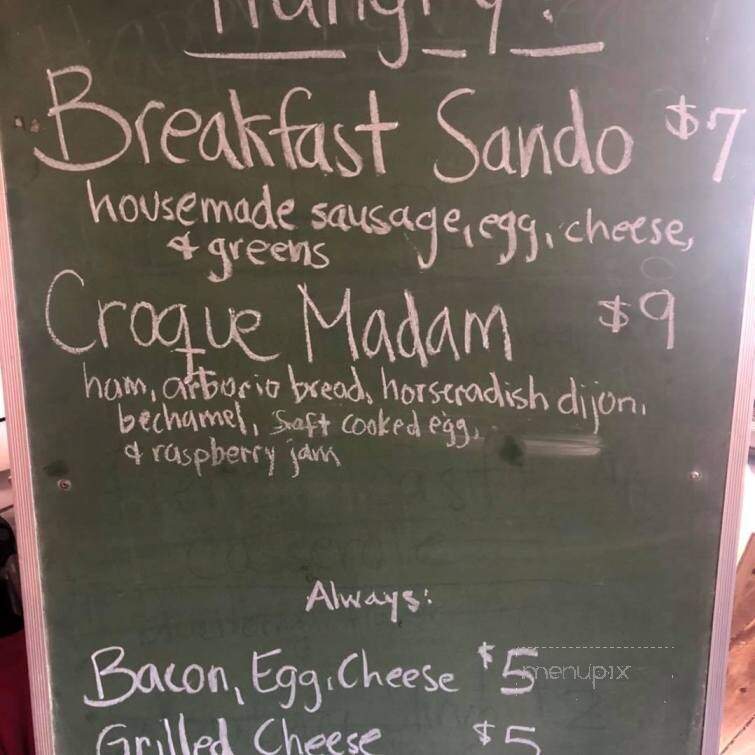 Hungry?
Breakfast Sando $7
housemade sausage, egg, cheese,
& greens
Croque Madam $9
ham, arborio bread, horseradish dijon,
bechamel, soft cooked egg,
& raspberry jam
Always:
Bacon, Egg, Cheese $5
menupix
Grilled Cheese $5